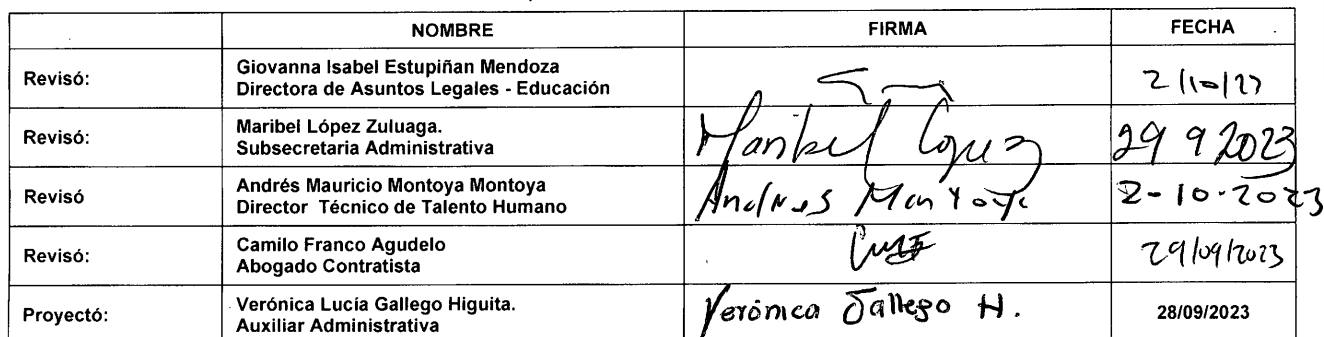 NOMBRE FIRMA FECHA
Revisó: Giovanna Isabel Estupiñan Mendoza
Directora de Asuntos Legales - Educación 2/10/23
Revisó: Maribel López Zuluaga.
Subsecretaria Administrativa Maribel López 29 9 2023
Revisó Andrés Mauricio Montoya Montoya
Director Técnico de Talento Humano Andres Montoya 2-10-2023
Revisó: Camilo Franco Agudelo
Abogado Contratista 29/09/2023
Proyectó: Verónica Lucía Gallego Higuita.
Auxiliar Administrativa Verónica Gallego H. 28/09/2023